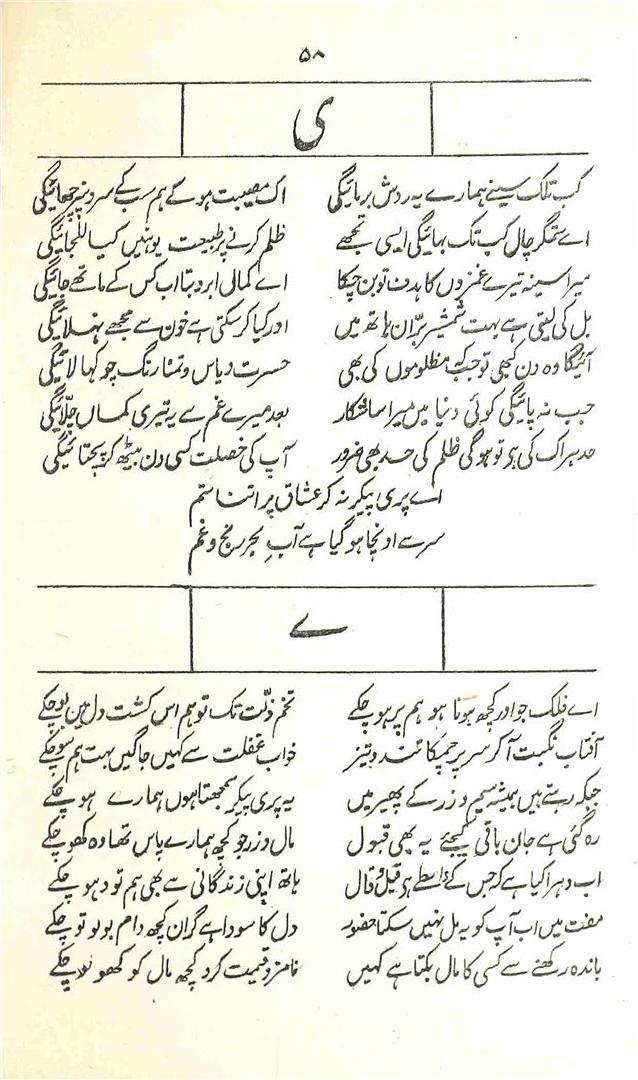 ۵۸
ی
کب تلک سینے ہمارے یہ روش برمائیگی اک مصیبت ہو کے ہم سب کے سروں پر چھائیگی
اے ستمگر چال کب تک بھائیگی ایسی تجھے ظلم کرنے پر طبیعت یوں نہیں کیا للچائیگی
میرا سینہ تیرے غمزوں کا ہدف تو بن چکا اے کمالی ابرو بتا اب کس کے ماتھے جائیگی
بل کی لیتی ہے بہت شمشیر برّاں ہاتھ میں اور کیا کر سکتی ہے خون سے مجھے نہلائیگی
آئیگا وہ دن کبھی تو جب کہ مظلوموں کی بھی حسرت و یاس و تمنا رنگ چوکھا لائیگی
جب نہ پائیگی کوئی دنیا میں میرا سا شکار بعد میرے غم سے یہ تیری کماں چلّائیگی
حد ہر اک کی ہے تو ہوگی ظلم کی حد بھی ضرور آپ کی خصلت کسی دن بیٹھ کر پچتائیگی
اے پری پیکر نہ کر عشاق پر اتنا ستم
سر سے اونچا ہو گیا ہے آب بحر رنج و غم
ے
اے فلک جو اور کچھ ہونا ہو ہم پر ہو چکے تخم ذلّت تک تو ہم اس کشت دل میں بو چکے
آفتاب نکبت آ کر سر پر چمکا تند و تیز خواب غفلت سے کہیں جاگیں بہت ہم سو چکے
جبکہ رہتے ہیں ہمیشہ سیم و زر کے پھیر میں یہ پری پیکر سمجھتا ہوں ہمارے ہو چکے
رہ گئی ہے جان باقی کیجئے یہ بھی قبول مال و زر جو کچھ ہمارے پاس تھا وہ کھو چکے
اب دہرا کیا ہے کہ جس کے واسطے ہو قیل و قال ہاتھ اپنی زندگانی سے بھی ہم تو دہو چکے
مفت میں اب آپ کو یہ مل نہیں سکتا حضور دل کا سودا ہے گراں کچھ دام بولو تو چکے
باندہ رکھنے سے کسی کا مال بکتا ہے کہیں نامزد قیمت کرو کچھ مال کو کھولو چکے